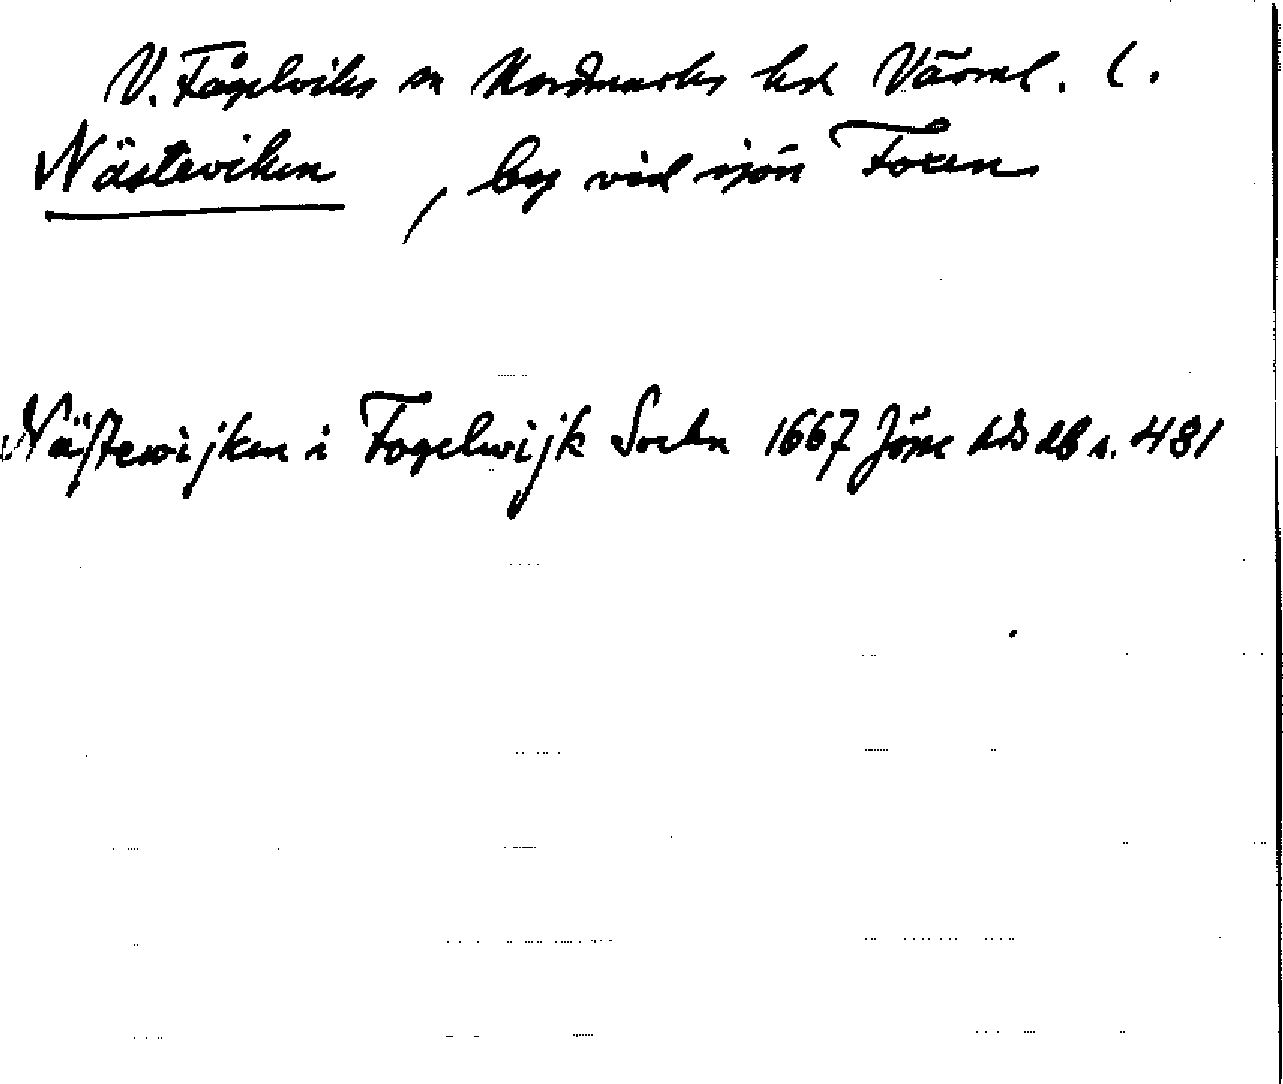 V. Fågelviks sn Nordmarks hd Värml. l.
Nästeviken, by vid sjön Foxen
Nästewijken i Fogelwijk Sockn 1667 Jösse hds db s. 481